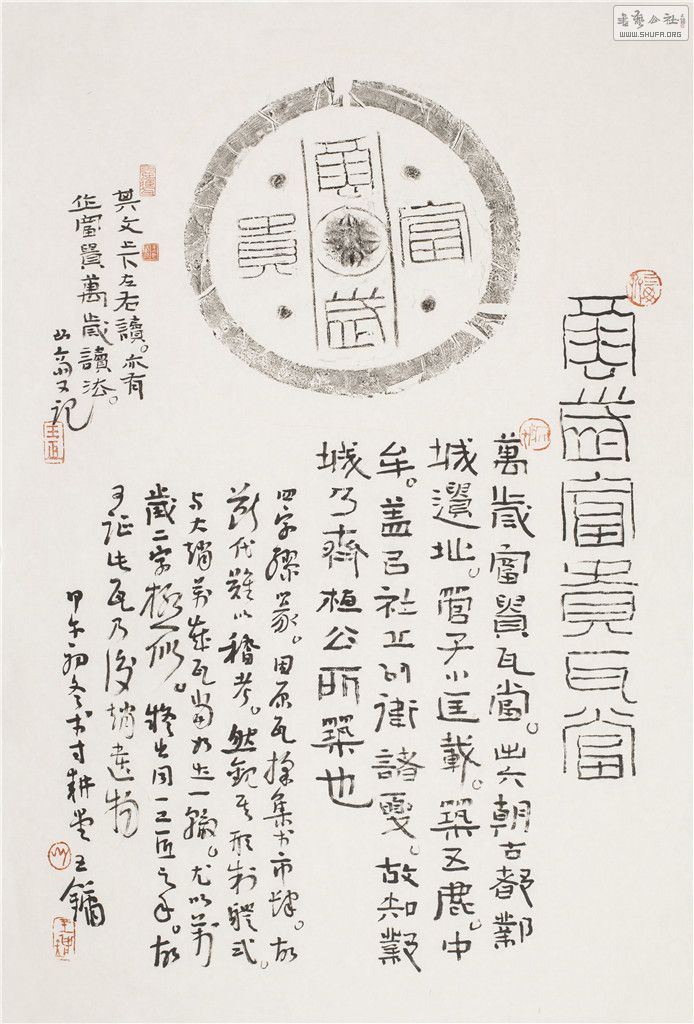 書藝公社
WWW.SHUFA.ORG
萬歲富貴瓦當
萬歲
富貴
萬歲富貴瓦當。出六朝古都鄴
城遺址。管子小匡載。築五鹿。中
牟。蓋与社丘以衛諸夏。故知鄴
城乃齊桓公所築也
四字繆篆。因原瓦採集於市肆。故
斷代難以稽考。然觀其形制體式。
与大趙萬歲瓦當如出一轍。尤以萬
歲二字極似。疑出同一工匠之手。故
可証此瓦乃後趙遺物
甲午初冬於寸耕堂王鏞
其文上下左右讀。亦有
作富貴萬歲讀法。
凸齋又記